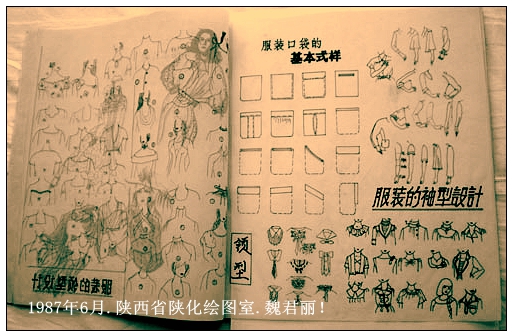 服装口袋的
基本式样
服装的袖型設計
领型
1987年6月.陕西省陕化绘图室.魏君丽!